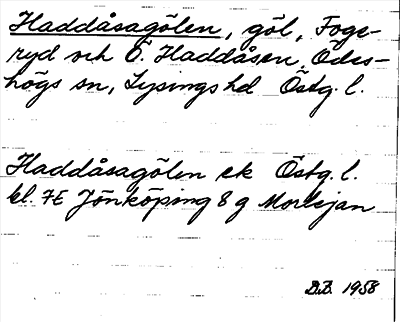 Haddåsagölen, göl, Foge-
ryd och Ö. Haddåsen, Ödes-
högs sn, Lysings hd Östg. l.
Haddåsagölen ek Östg. l.
bl. 7E Jönköping 8g
D.B. 1958